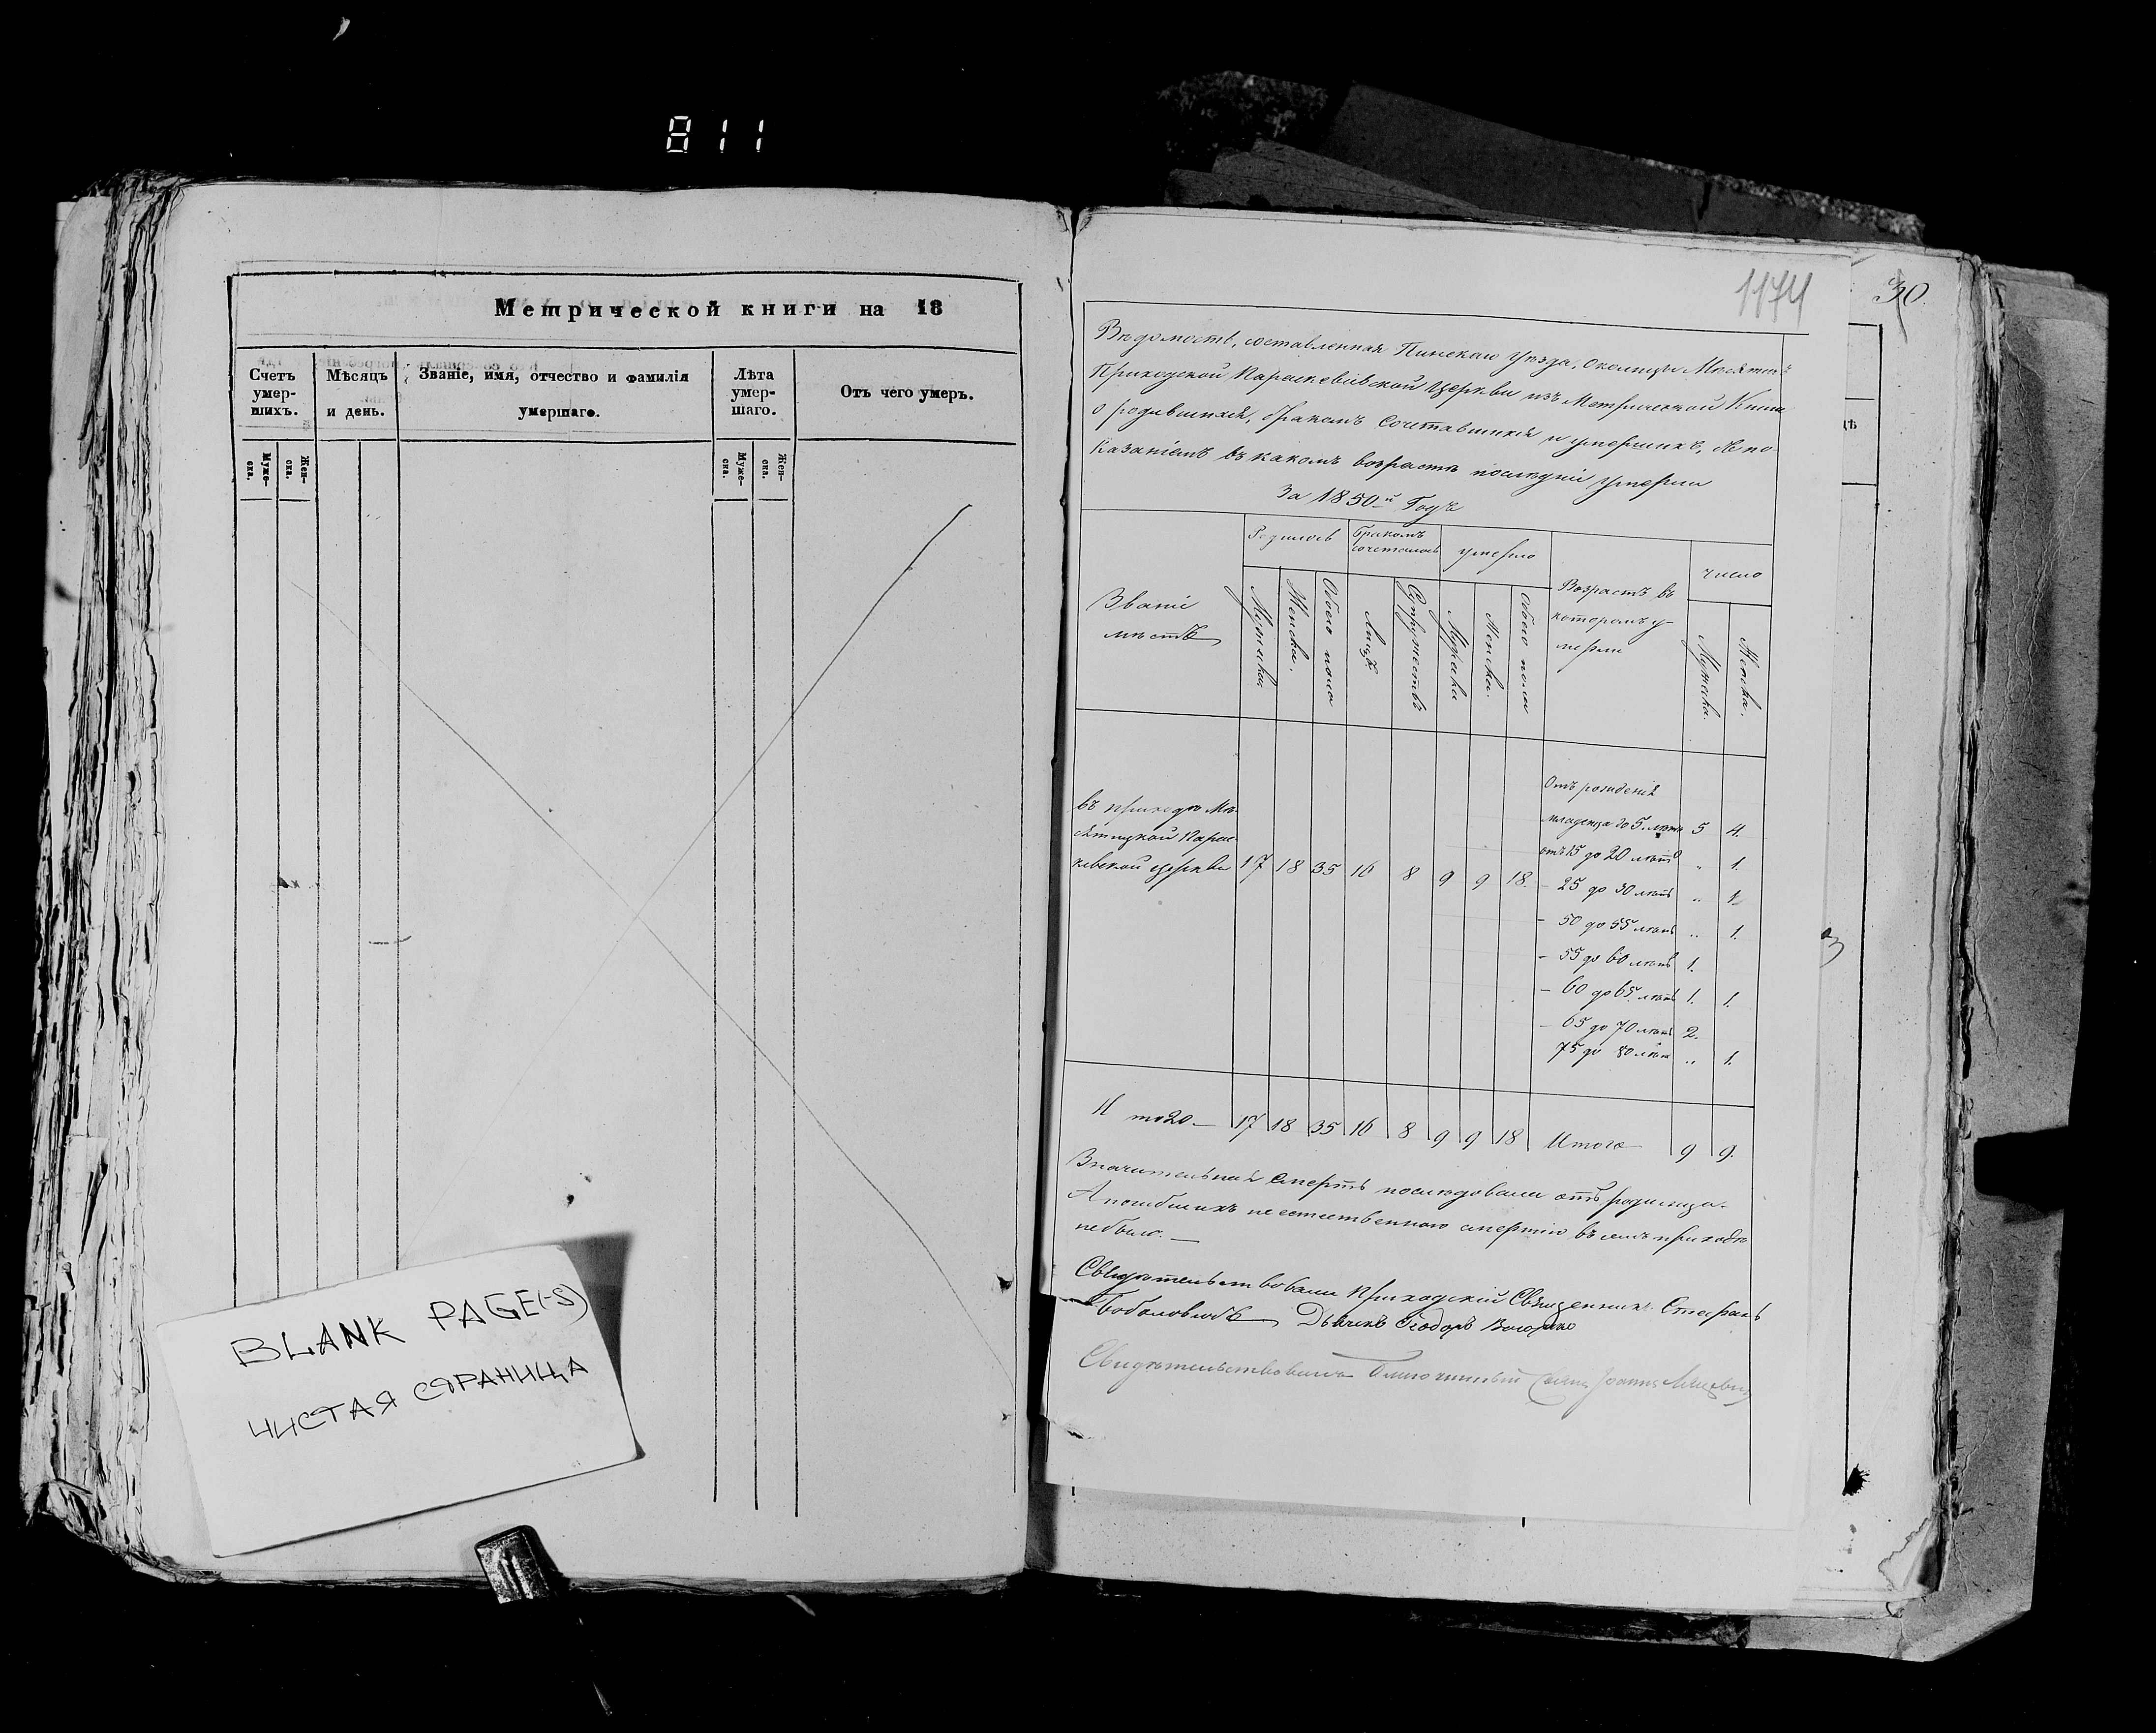 811
Метрической книги на 18
Счетъ умер-шихъ.
Мѣсяцъ и день.
Званіе, имя, отчество и фамилія умершаго.
Лѣта умер-шаго.
Отъ чего умеръ.
Муже-ска.
Жен-ска.
Муже-ска.
Жен-ска.
BLANK PAGE(-S)
ЧИСТАЯ СТРАНИЦА
1174
30
Вѣдомость, составленная Пинскаго уѣзда, Околицы
Приходской Параскевіевской Церкви изъ Метрической Книги
о родившихся, бракомъ сочетавшихся и умершихъ, съ по
казаніемъ въ какомъ возрастѣ послѣдніе умерли
За 1850й Годъ
Званіе мѣстъ
Родилось
Бракомъ сочеталось
умерло
Возрастъ въ которомъ у-мерли
число
Мужска
Женска.
Обоего пола
Лицъ.
Супружествъ
Мужска
Женска.
Обоего пола
Мужска.
Женска.
въ приходѣ
Парас-
кевской церкви 17 18 35 16 8 9 9 18.
Отъ рожденія
младенца до 5. лѣтъ 5 4.
отъ 15 до 20 лѣтъ „ 1.
- 25 до 30 лѣтъ „ 1.
- 50 до 55 лѣтъ „ 1.
- 55 до 60 лѣтъ 1.
- 60 до 65. лѣтъ 1. 1.
- 65 до 70 лѣтъ 2.
75 до 80 лѣтъ „ 1.
Итого 17 18 35 16 8 9 9 18 Итого 9 9.
Значительная смерть послѣдовали отъ родимца.
А погибшихъ не естественною смертію въ семъ приходѣ
небыло.
Свидѣтельствовали Приходскій Священникъ Стефанъ
Дьячекъ Ѳеодоръ
Свидѣтельствовалъ Благочинный Іоаннъ